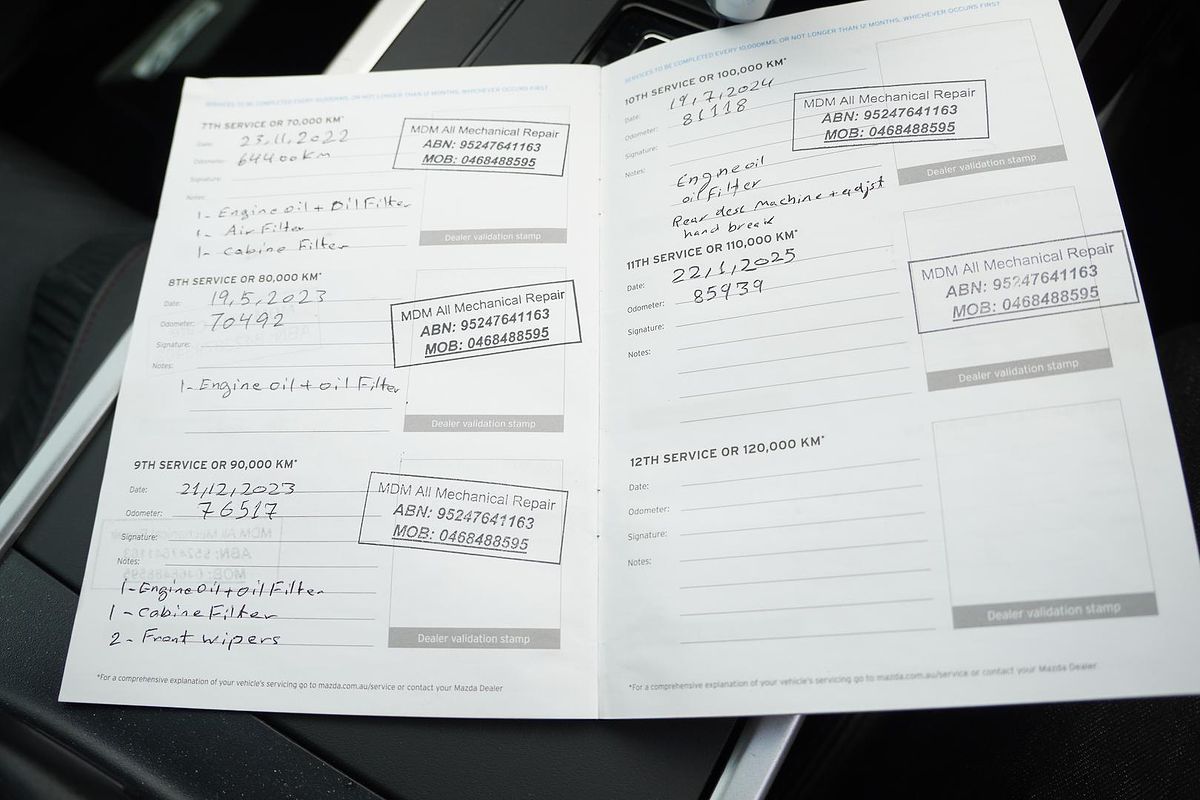 SERVICES TO BE COMPLETED EVERY 10,000KMS, OR NOT LONGER THAN 12 MONTHS, WHICHEVER OCCURS FIRST
7TH SERVICE OR 70,000 KM*
Date: 23,11,2022
Odometer: 64400km
Signature:
Notes:
1- Engine oil + Oil Filter
1- Air Filter
1- Cabine Filter
MDM All Mechanical Repair
ABN: 95247641163
MOB: 0468488595
Dealer validation stamp
8TH SERVICE OR 80,000 KM*
Date: 19,5,2023
Odometer: 70492
Signature:
Notes:
1- Engine oil + oil Filter
MDM All Mechanical Repair
ABN: 95247641163
MOB: 0468488595
Dealer validation stamp
9TH SERVICE OR 90,000 KM*
Date: 21,12,2023
Odometer: 76517
Signature:
Notes:
1- Engine Oil + oil Filter
1- Cabine Filter
2- Front wipers
MDM All Mechanical Repair
ABN: 95247641163
MOB: 0468488595
Dealer validation stamp
*For a comprehensive explanation of your vehicle's servicing go to mazda.com.au/service or contact your Mazda Dealer
SERVICES TO BE COMPLETED EVERY 10,000KMS, OR NOT LONGER THAN 12 MONTHS, WHICHEVER OCCURS FIRST
10TH SERVICE OR 100,000 KM*
Date: 19,7,2024
Odometer: 81118
Signature:
Notes:
Engine oil
oil Filter
Rear desc Machine + adjst
hand break
MDM All Mechanical Repair
ABN: 95247641163
MOB: 0468488595
Dealer validation stamp
11TH SERVICE OR 110,000 KM*
Date: 22,1,2025
Odometer: 85939
Signature:
Notes:
MDM All Mechanical Repair
ABN: 95247641163
MOB: 0468488595
Dealer validation stamp
12TH SERVICE OR 120,000 KM*
Date:
Odometer:
Signature:
Notes:
Dealer validation stamp
*For a comprehensive explanation of your vehicle's servicing go to mazda.com.au/service or contact your Mazda Dealer